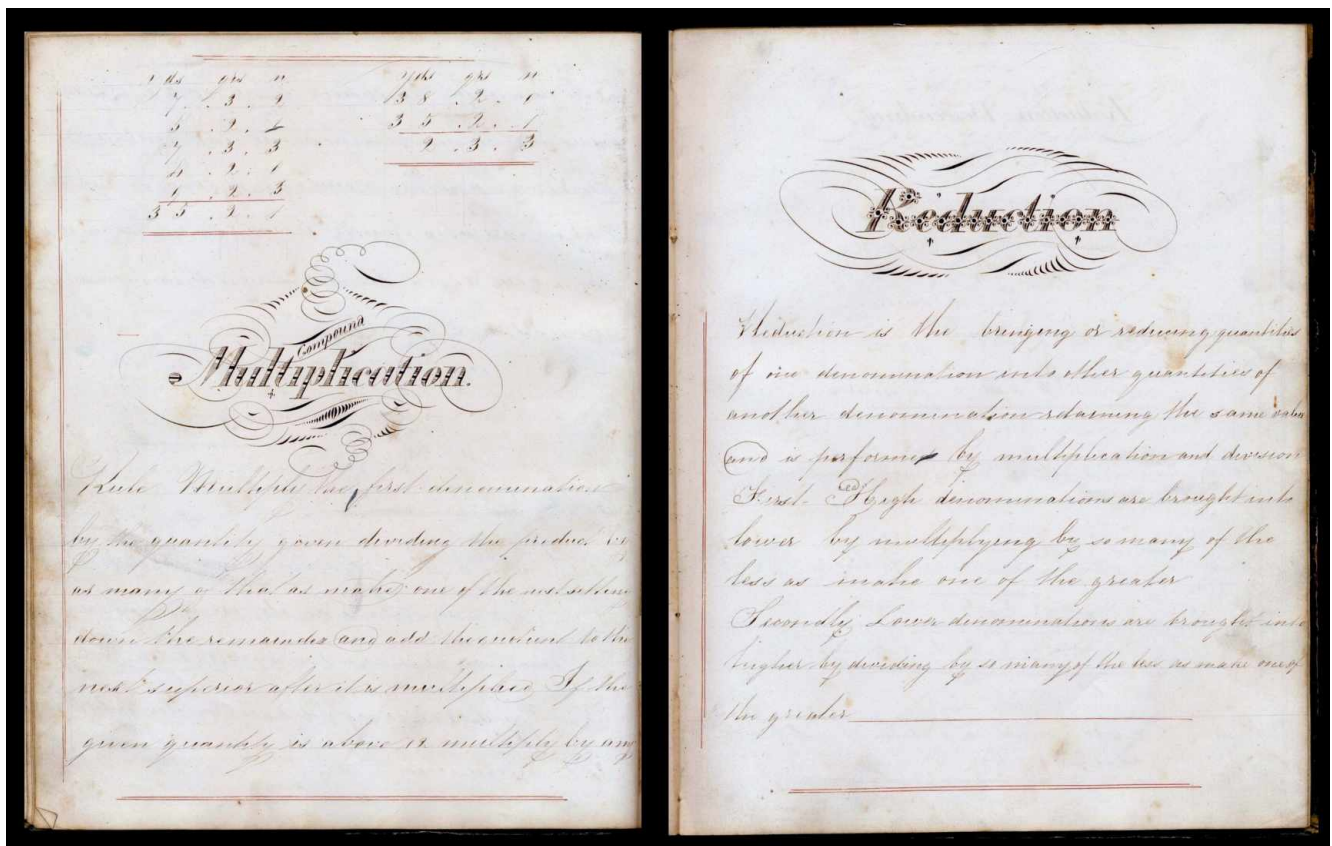 yds qrs n
7 . 3 . 2
5 . 2 . 1
7 . 3 . 3
2 . 1
2 . 3
3 5 . 2 . 1
yds qrs n
3 8 . 2 . 1
3 5 . 2 . 1
2 . 3 . 3
Compound
Multiplication.
Rule Multiply the first denomination
by the quantity given dividing the product by
as many of that as make one of the next setting
down the remainder and add the quotient to the
next superior after it is multiplied If the
given quantity is above 12 multiply by any
Reduction
Reduction is the bringing or reducing quantities
of one denomination into other quantities of
another denomination retaining the same value
and is performed by multiplication and division
First High denominations are brought into
lower by multiplying by so many of the
less as make one of the greater
Secondly Lower denominations are brought into
higher by dividing by so many of the less as make one of
the greater